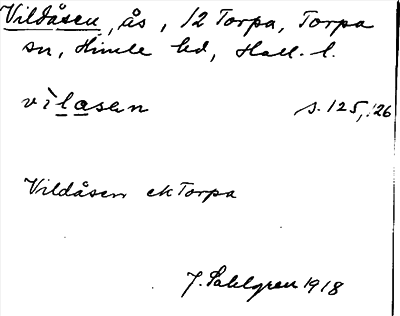 Vildåsen, ås, 12 Torpa, Torpa
sn, Himle hd, Hall. l.
vìlasen s. 125, 126
Vildåsen ek Torpa
J. Sahlgren 1918